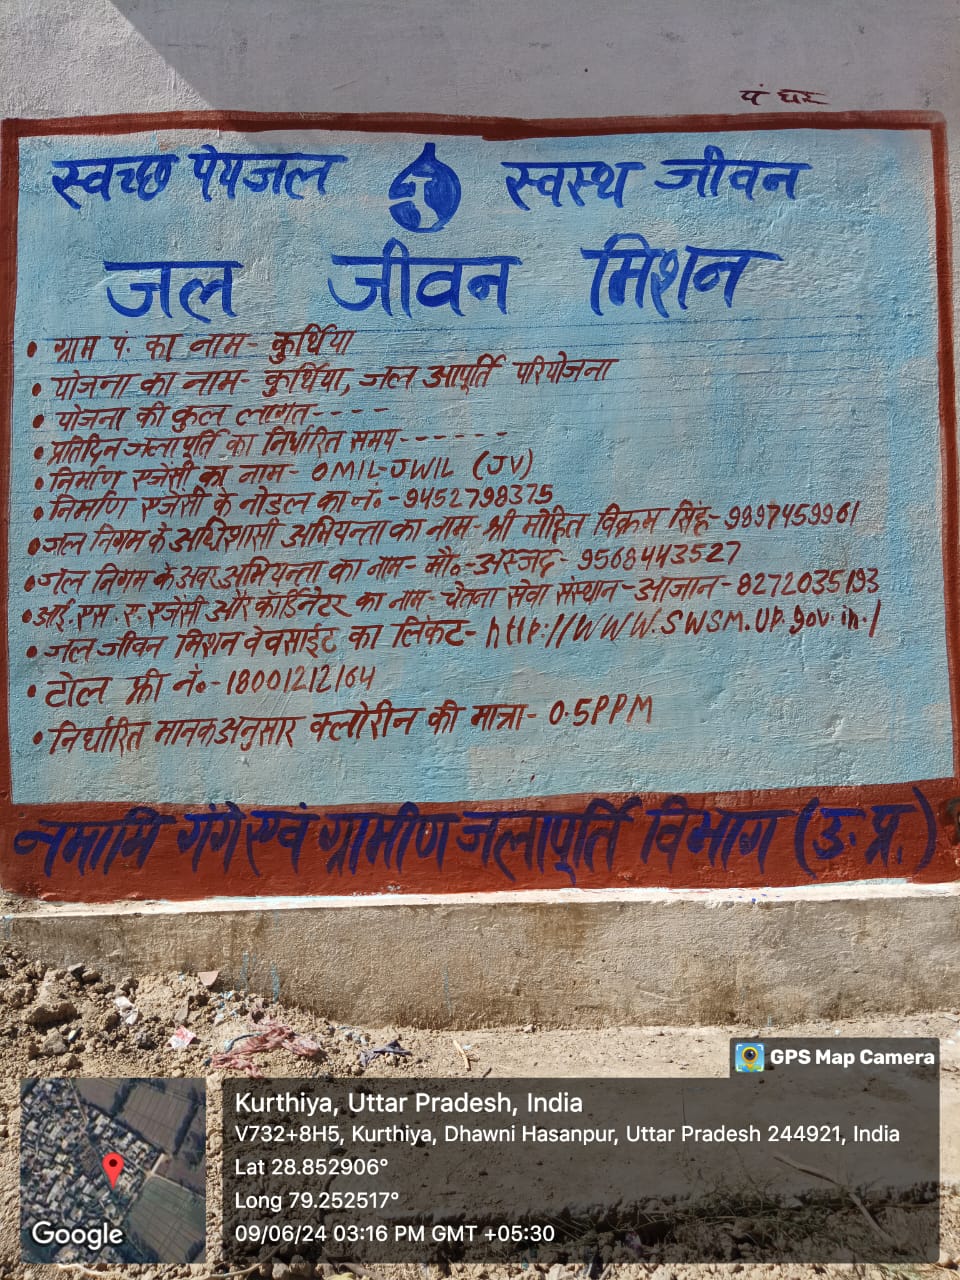 पं घर
स्वच्छ पेयजल स्वस्थ जीवन
जल जीवन मिशन
• ग्राम पं. का नाम- कुर्थिया
• योजना का नाम- कुर्थिया, जल आपूर्ति परियोजना
• योजना की कुल लागत----
• प्रतिदिन जलापूर्ति का निर्धारित समय------
• निर्माण एजेंसी का नाम- OMIL-JWIL (JV)
• निर्माण एजेंसी के नोडल का नं. -9452798375
• जल निगम के अधिशासी अभियन्ता का नाम- श्री मोहित विक्रम सिंह- 9897459961
• जल निगम के अवर अभियन्ता का नाम- मौ०-अस्जद- 9568443527
• आई. एस. ए. एजेंसी और कॉर्डिनेटर का नाम- चेतना सेवा संस्थान-आजान-8272035193
• जल जीवन मिशन वेवसाईट का लिंकट- http://WWW.SWSM.UP.gov.in./
• टोल फ्री नं०-18001212164
• निर्धारित मानक अनुसार क्लोरीन की मात्रा- 0.5PPM
नमामि गंगे एवं ग्रामीण जलापूर्ति विभाग (उ. प्र.)
GPS Map Camera
Kurthiya, Uttar Pradesh, India
V732+8H5, Kurthiya, Dhawni Hasanpur, Uttar Pradesh 244921, India
Lat 28.852906°
Long 79.252517°
09/06/24 03:16 PM GMT +05:30
Google